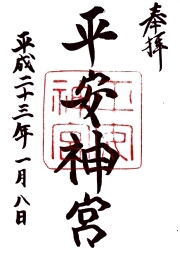 奉拝
平安神宮
平成二十三年一月八日